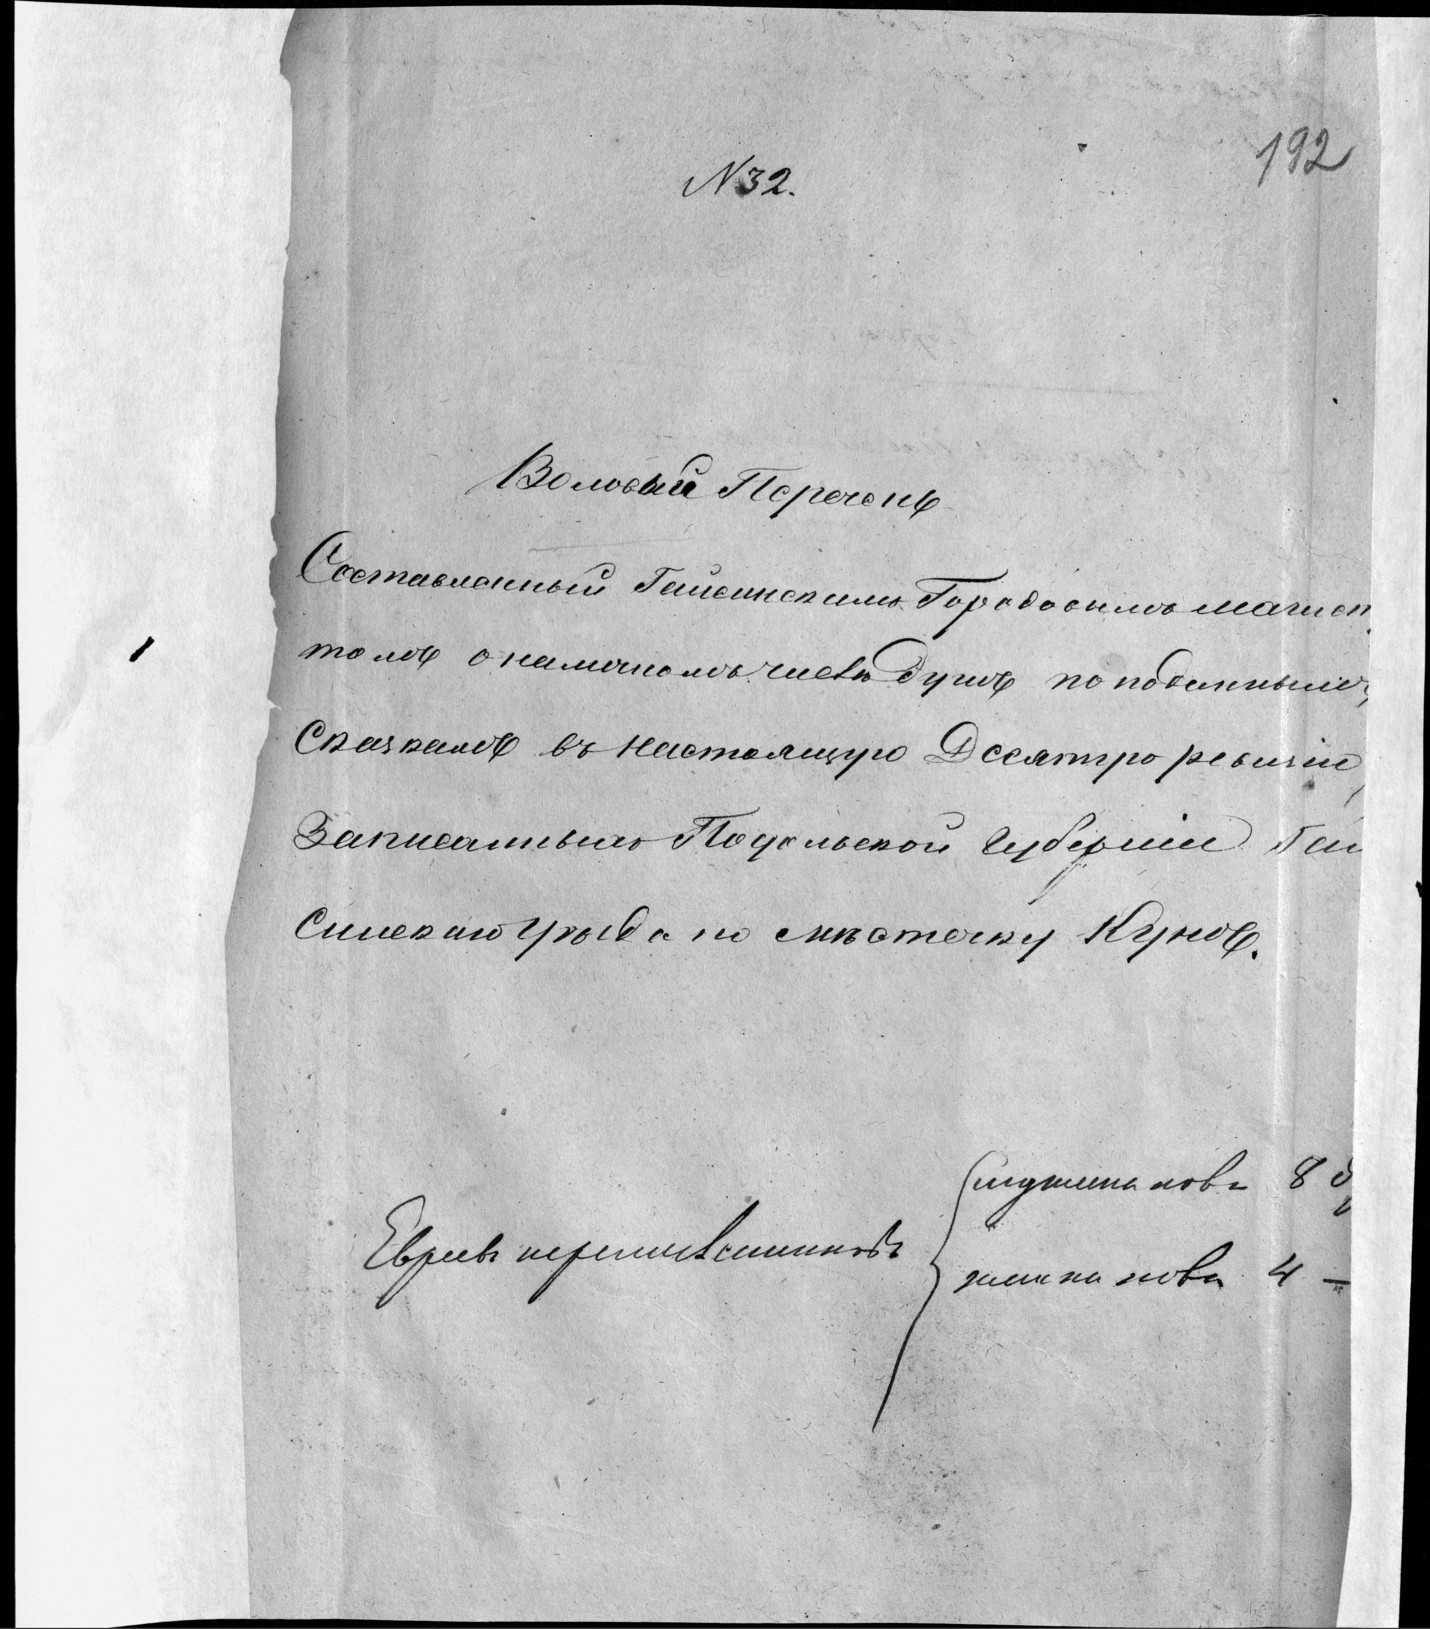 192
№ 32.
Валовый Перечень
Составленный Гайсинскимъ Городовымъ магист
томъ о наличномъ числѣ душъ по поданнымъ
Сказкамъ въ настоящую Десятую ревизію
Записанныхъ Подольской Губерніи Гай
Синскаго уѣзда по мѣстечку Кунѣ.
муж. пола 8
Евреевъ
женска пола 4 —